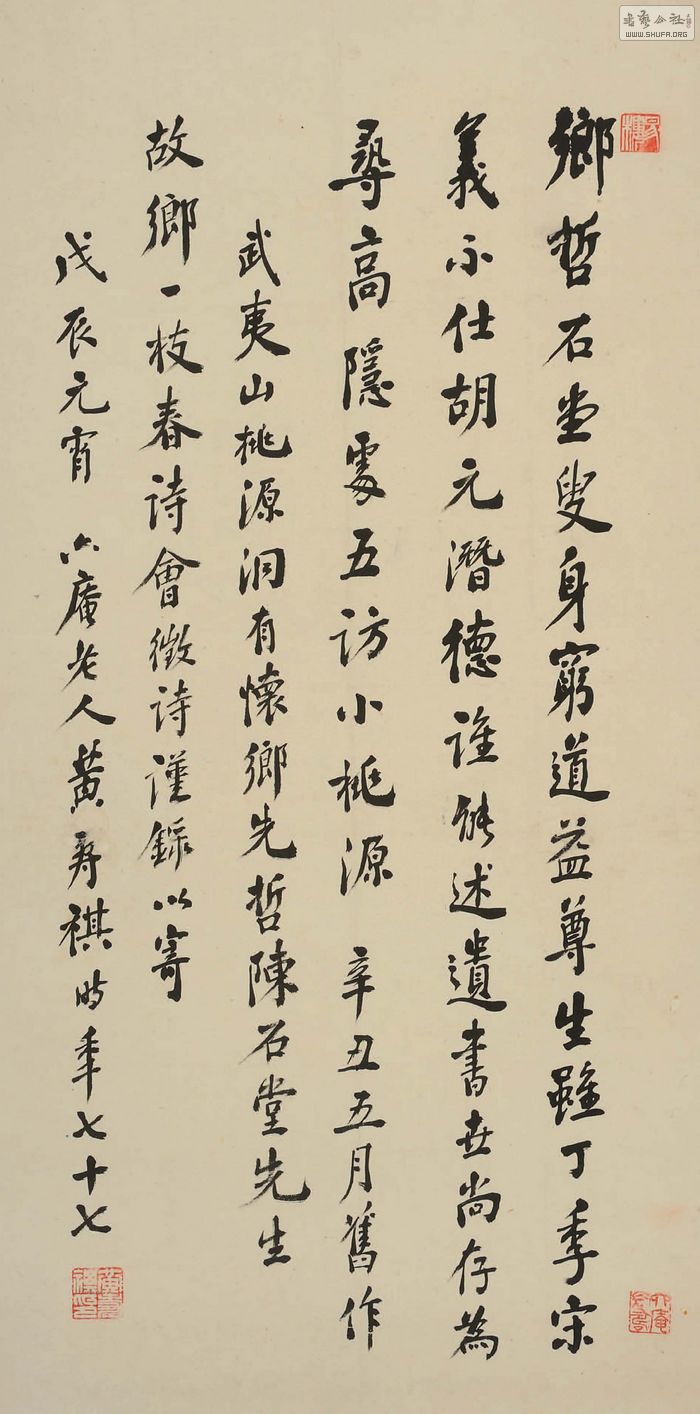 鄉哲石堂叟身窮道益尊生雖丁季宋
義不仕胡元潛德誰能述遺書世尚存為
尋高隱處五訪小桃源 辛丑五月舊作
武夷山桃源洞有懷鄉先哲陳石堂先生
故鄉一枝春詩會徵詩謹錄以寄
戊辰元宵 六庵老人黃壽祺時年七十七
書藝公社
WWW.SHUFA.ORG